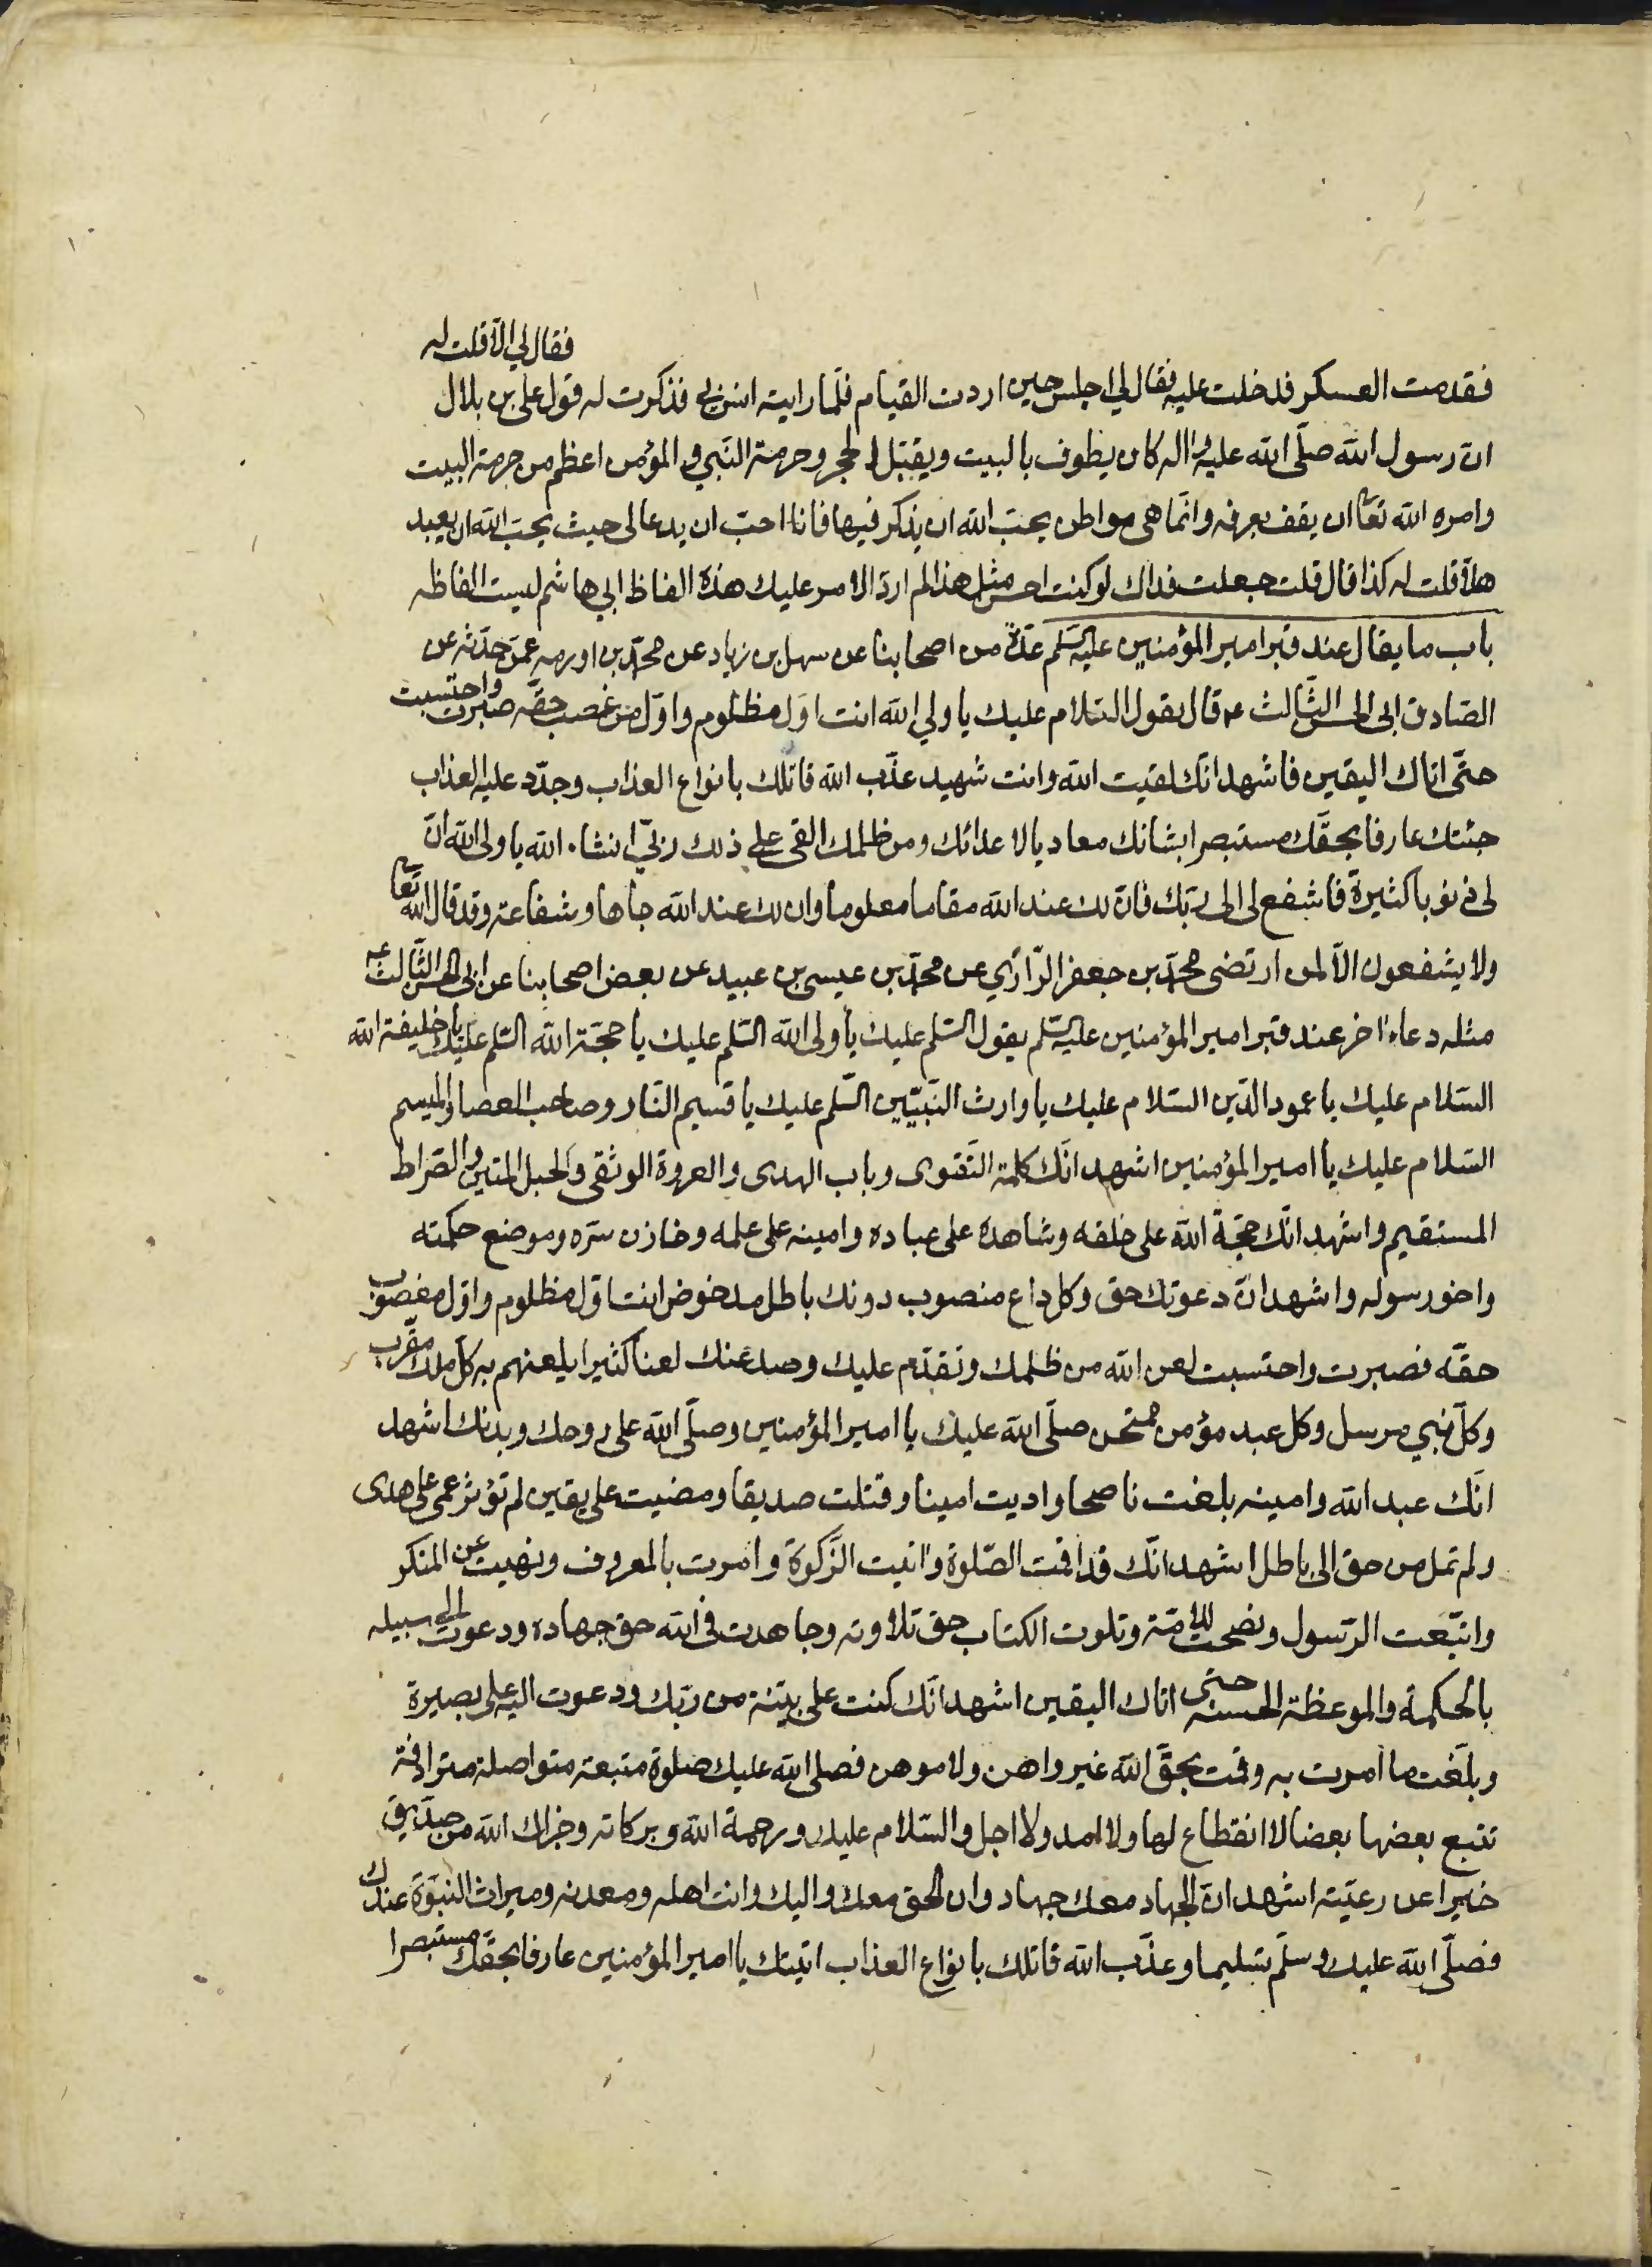 فقال لي الا قلت له
فقدمت العسكر فدخلت عليه فقال لي اجلس حين اردت القيام فلما رايته انس بي فذكرت له قول علي بن بلال
ان رسول الله صلّى الله عليه واله كان يطوف بالبيت ويقبّل الحجر وحرمة النبي والمؤمن اعظم من حرمة البيت
وامره الله تعا ان يقف بعرفه وانّما هي مواطن يحبّ الله ان يذكر فيها فانا احبّ ان يدعا لي حيث يحبّ الله ان يعبد
هلّا قلت له كذا قال قلت جعلت فداك لو كنت احسن مثل هذا لم ارد الامر عليك هذه الفاظ ابي هاشم ليست الفاظه
باب ما يقال عند قبر امير المؤمنين عليه السّلم عدّة من اصحابنا عن سهل بن زياد عن محمّد بن اورمه عمّن حدّثه عن
الصّادق ابي الحسن الثّالث ع قال يقول السّلام عليك يا ولي الله انت اوّل مظلوم واوّل من غصب حقّه صبرت واحتسبت
حتّى اتاك اليقين فاشهد انّك لقيت الله وانت شهيد عذّب الله قاتلك بانواع العذاب وجدّد عليه العذاب
جئتك عارفا بحقّك مستبصرا بشانك معاديا لاعدائك ومن ظلمك القى على ذلك ربّي انشاء الله يا ولى الله انّ
لى ذنوبا كثيرة فاشفع لى الى ربّك فانّ لك عند الله مقاما معلوما وان لك عند الله جاها وشفاعة وقد قال الله تعا
ولا يشفعون الّا لمن ارتضى محمّد بن جعفر الرّازي عن محمّد بن عيسى بن عبيد عن بعض اصحابنا عن ابى الحسن الثّالث ع
مثله دعاء اخر عند قبر امير المؤمنين عليه السّلم يقول السّلم عليك يا ولى الله السّلم عليك يا حجّة الله السّلم عليك يا خليفة الله
السّلام عليك يا عمود الدّين السّلام عليك يا وارث النّبيّين السّلم عليك يا قسيم النّار وصاحب العصا والميسم
السّلام عليك يا امير المؤمنين اشهد انّك كلمة التّقوى وباب الهدى والعروة الوثقى والحبل المتين والصّراط
المستقيم واشهد انّك حجّة الله على خلقه وشاهده على عباده وامينه على علمه وخازن سرّه وموضع حكمته
واخو رسوله واشهد انّ دعوتك حق وكل داع منصوب دونك باطل مدحوض انت اوّل مظلوم واوّل مغصوب
حقّه فصبرت واحتسبت لعن الله من ظلمك وتقدّم عليك وصد عنك لعنا كثيرا يلعنهم به كلّ ملك مقرّب
وكلّ نبي مرسل وكل عبد مؤمن ممتحن صلّى الله عليك يا امير المؤمنين وصلّى الله على روحك وبدنك اشهد
انّك عبد الله وامينه بلغت ناصحا واديت امينا وقتلت صديقا ومضيت على يقين لم تؤثر عمى على هدى
ولم تمل من حق الى باطل اشهد انّك قد اقمت الصّلوة واتيت الزّكوة وامرت بالمعروف ونهيت عن المنكر
واتّبعت الرّسول ونصحت للامّة وتلوت الكتاب حق تلاوته وجاهدت في الله حق جهاده ودعوت الى سبيله
بالحكمة والموعظة الحسنة حتى اتاك اليقين اشهد انّك كنت على بيّنة من ربّك ودعوت اليه على بصيرة
وبلّغت ما امرت به وقمت بحقّ الله غير واهن ولا موهن فصلى الله عليك صلوة متبعة متواصلة مترادفة
تتبع بعضها بعضا لا انقطاع لها ولا امد ولا اجل والسّلام عليك ورحمة الله وبركاته وجزاك الله من صدّيق
خيرا عن رعيّته اشهد انّ الجهاد معك جهاد وان الحق معك واليك وانت اهله ومعدنه وميراث النبوّة عندك
فصلّى الله عليك وسلّم تسليما وعذّب الله قاتلك بانواع العذاب اتيتك يا امير المؤمنين عارفا بحقّك مستبصرا